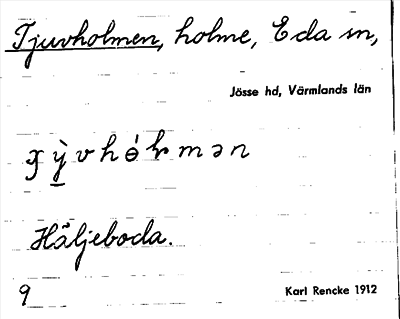 Tjuvholmen, holme, Eda sn,
Jösse hd, Värmlands län
Häljeboda.
9
Karl Rencke 1912